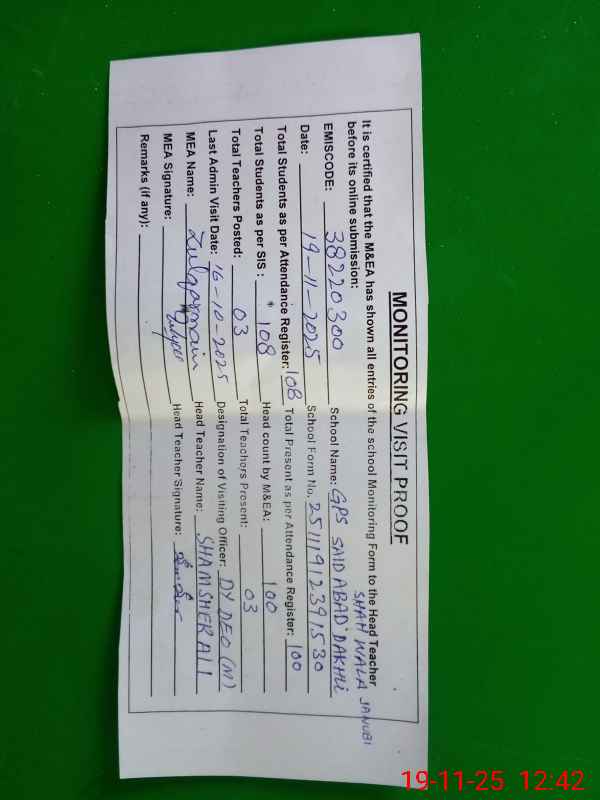 MONITORING VISIT PROOF
It is certified that the M&EA has shown all entries of the school Monitoring Form to the Head Teacher
before its online submission:
SHAH WALA JANUBI
EMISCODE: 38220300 School Name: GPS SAIDABAD DAKHLI
Date: 19-11-2025 School Form No. 25111912391530
Total Students as per Attendance Register: 108 Total Present as per Attendance Register: 100
Total Students as per SIS : 108 Head count by M&EA: 100
Total Teachers Posted: 03 Total Teachers Present: 03
Last Admin Visit Date: 16-10-2025 Designation of Visiting Officer: DY DEO (M)
MEA Name: Zulqarnain Head Teacher Name: SHAMSHER ALI
MEA Signature: Head Teacher Signature:
Remarks (if any):
19-11-25 12:42